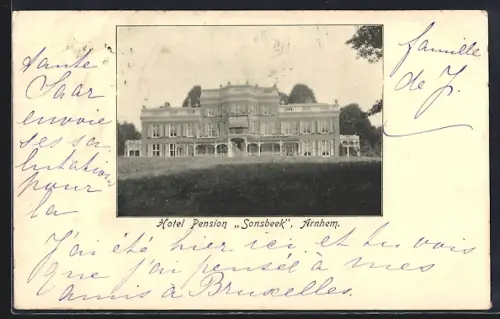 Tante
Saar
envoie
ses sa
lutations
pour
la
famille
de J.
Hotel Pension „Sonsbeek", Arnhem.
J'ai été hier ici et tu vois
que j'ai pensée à mes
amis à Bruxelles.